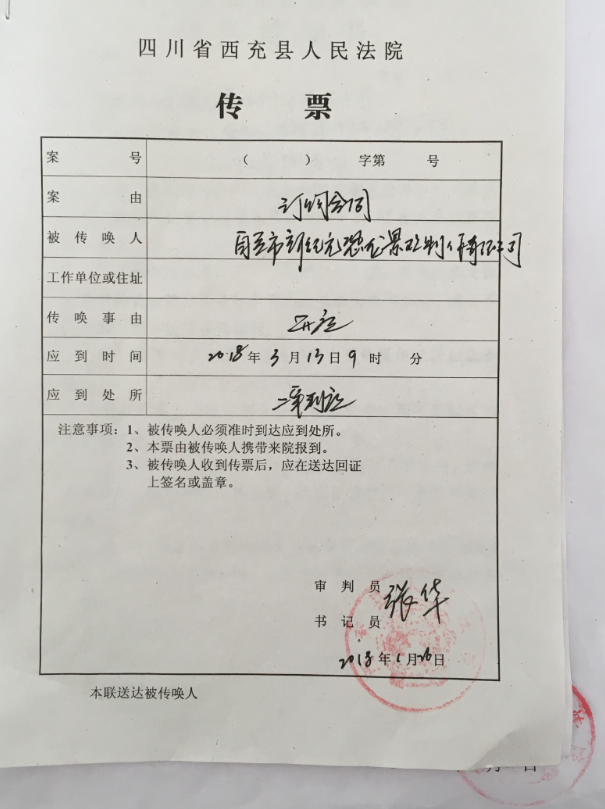 四川省西充县人民法院
传票
案号 （ ）字第 号
案由 订购合同
被传唤人 自贡市新纪元恐龙景观制作有限公司
工作单位或住址
传唤事由 开庭
应到时间 2018年3月13日9时 分
应到处所 二审判庭
注意事项：1、被传唤人必须准时到达应到处所。
2、本票由被传唤人携带来院报到。
3、被传唤人收到传票后，应在送达回证
上签名或盖章。
审判员 张华
书记员
2018年1月26日
本联送达被传唤人
月 日